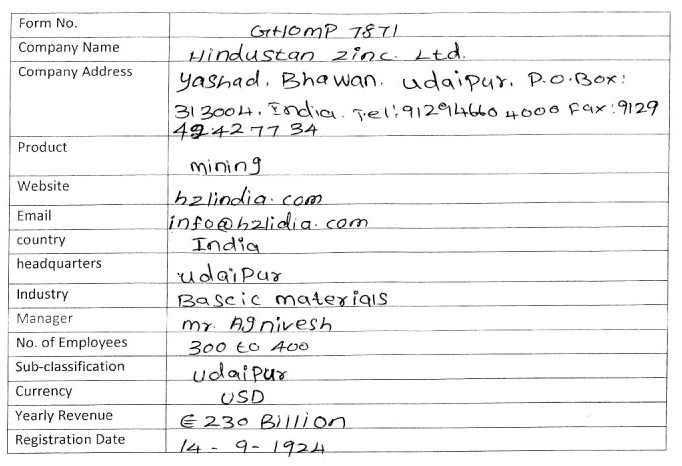 Form No. GHOMP 7871
Company Name Hindustan zinc. Ltd.
Company Address Yashad. Bhawan. Udaipur. P.O.Box:
313004. India. Tel:912914660 4000 Fax:9129
42427734
Product mining
Website hzlindia.com
Email info@hzlidia.com
country India
headquarters udaipur
Industry Bascic materials
Manager mr. Agnivesh
No. of Employees 300 to 400
Sub-classification udaipur
Currency USD
Yearly Revenue € 230 Billion
Registration Date 14 - 9 - 1924